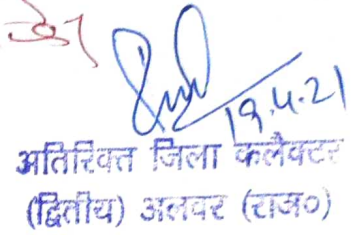 19.4.21
अतिरिक्त जिला कलैक्टर
(द्वितीय) अलवर (राज०)